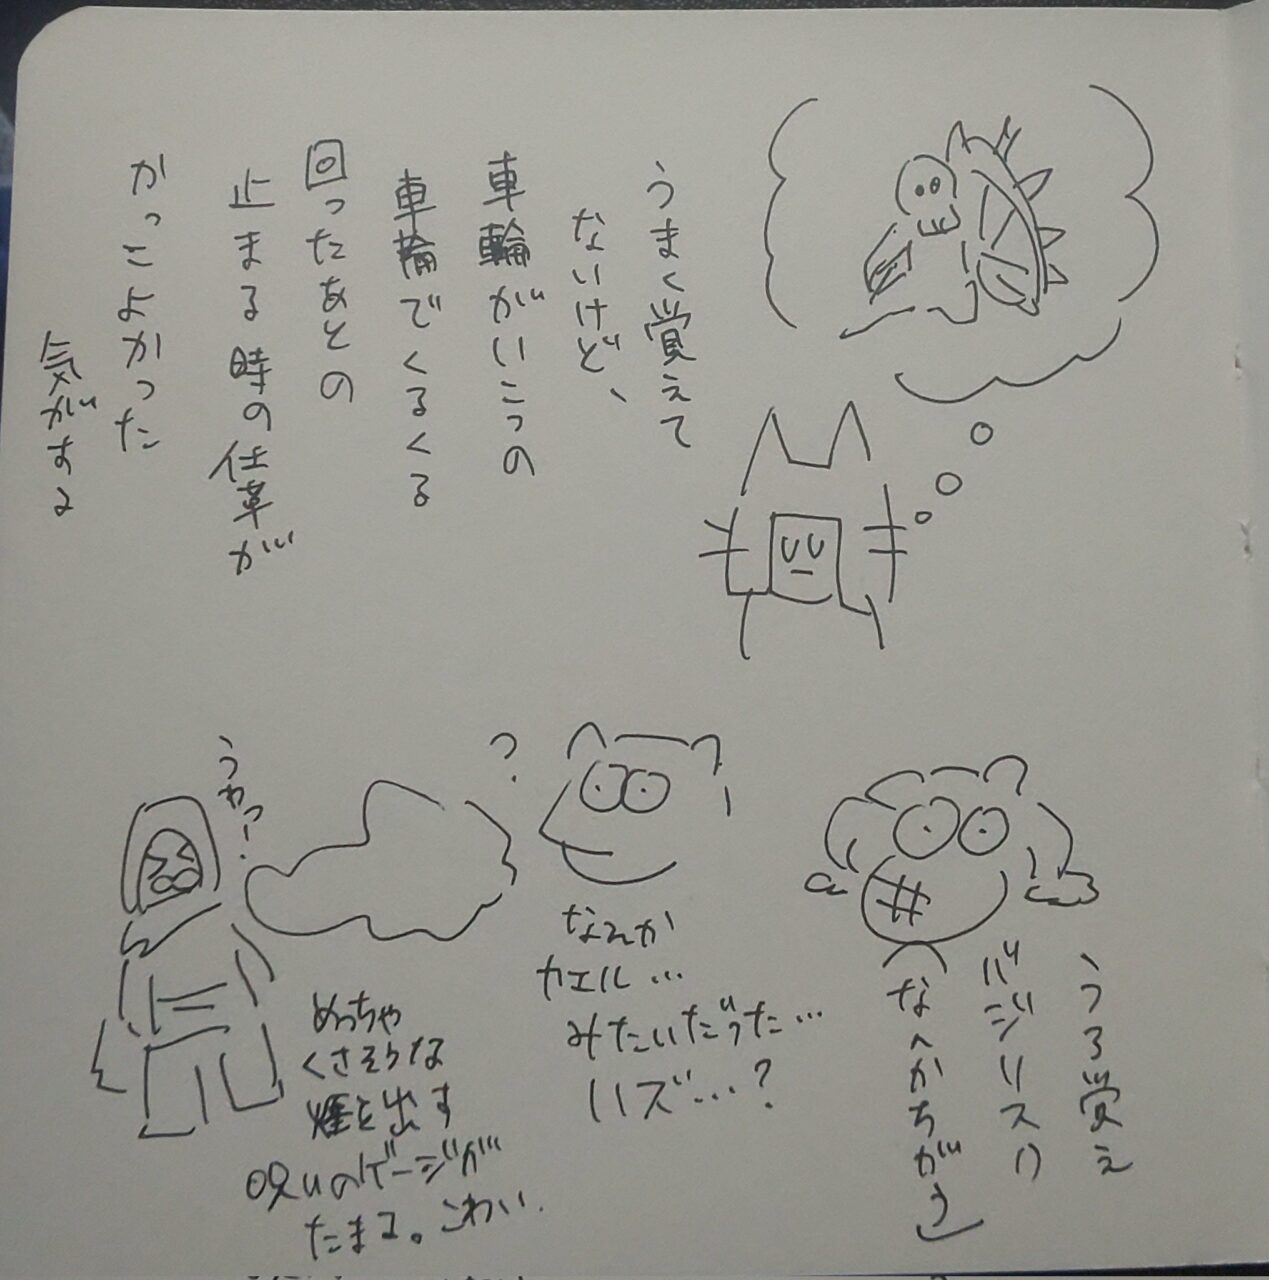 うまく覚えて
ないけど、
車輪がいこつの
車輪でくるくる
回ったあとの
止まる時の仕草が
かっこよかった
気がする
うろ覚え
バジリスク
なんかちがう
?
なんか
カエル…
みたいだった…
ハズ…?
うわっ!
めっちゃ
くさそうな
煙を出す
呪いのゲージが
たまる。こわい.